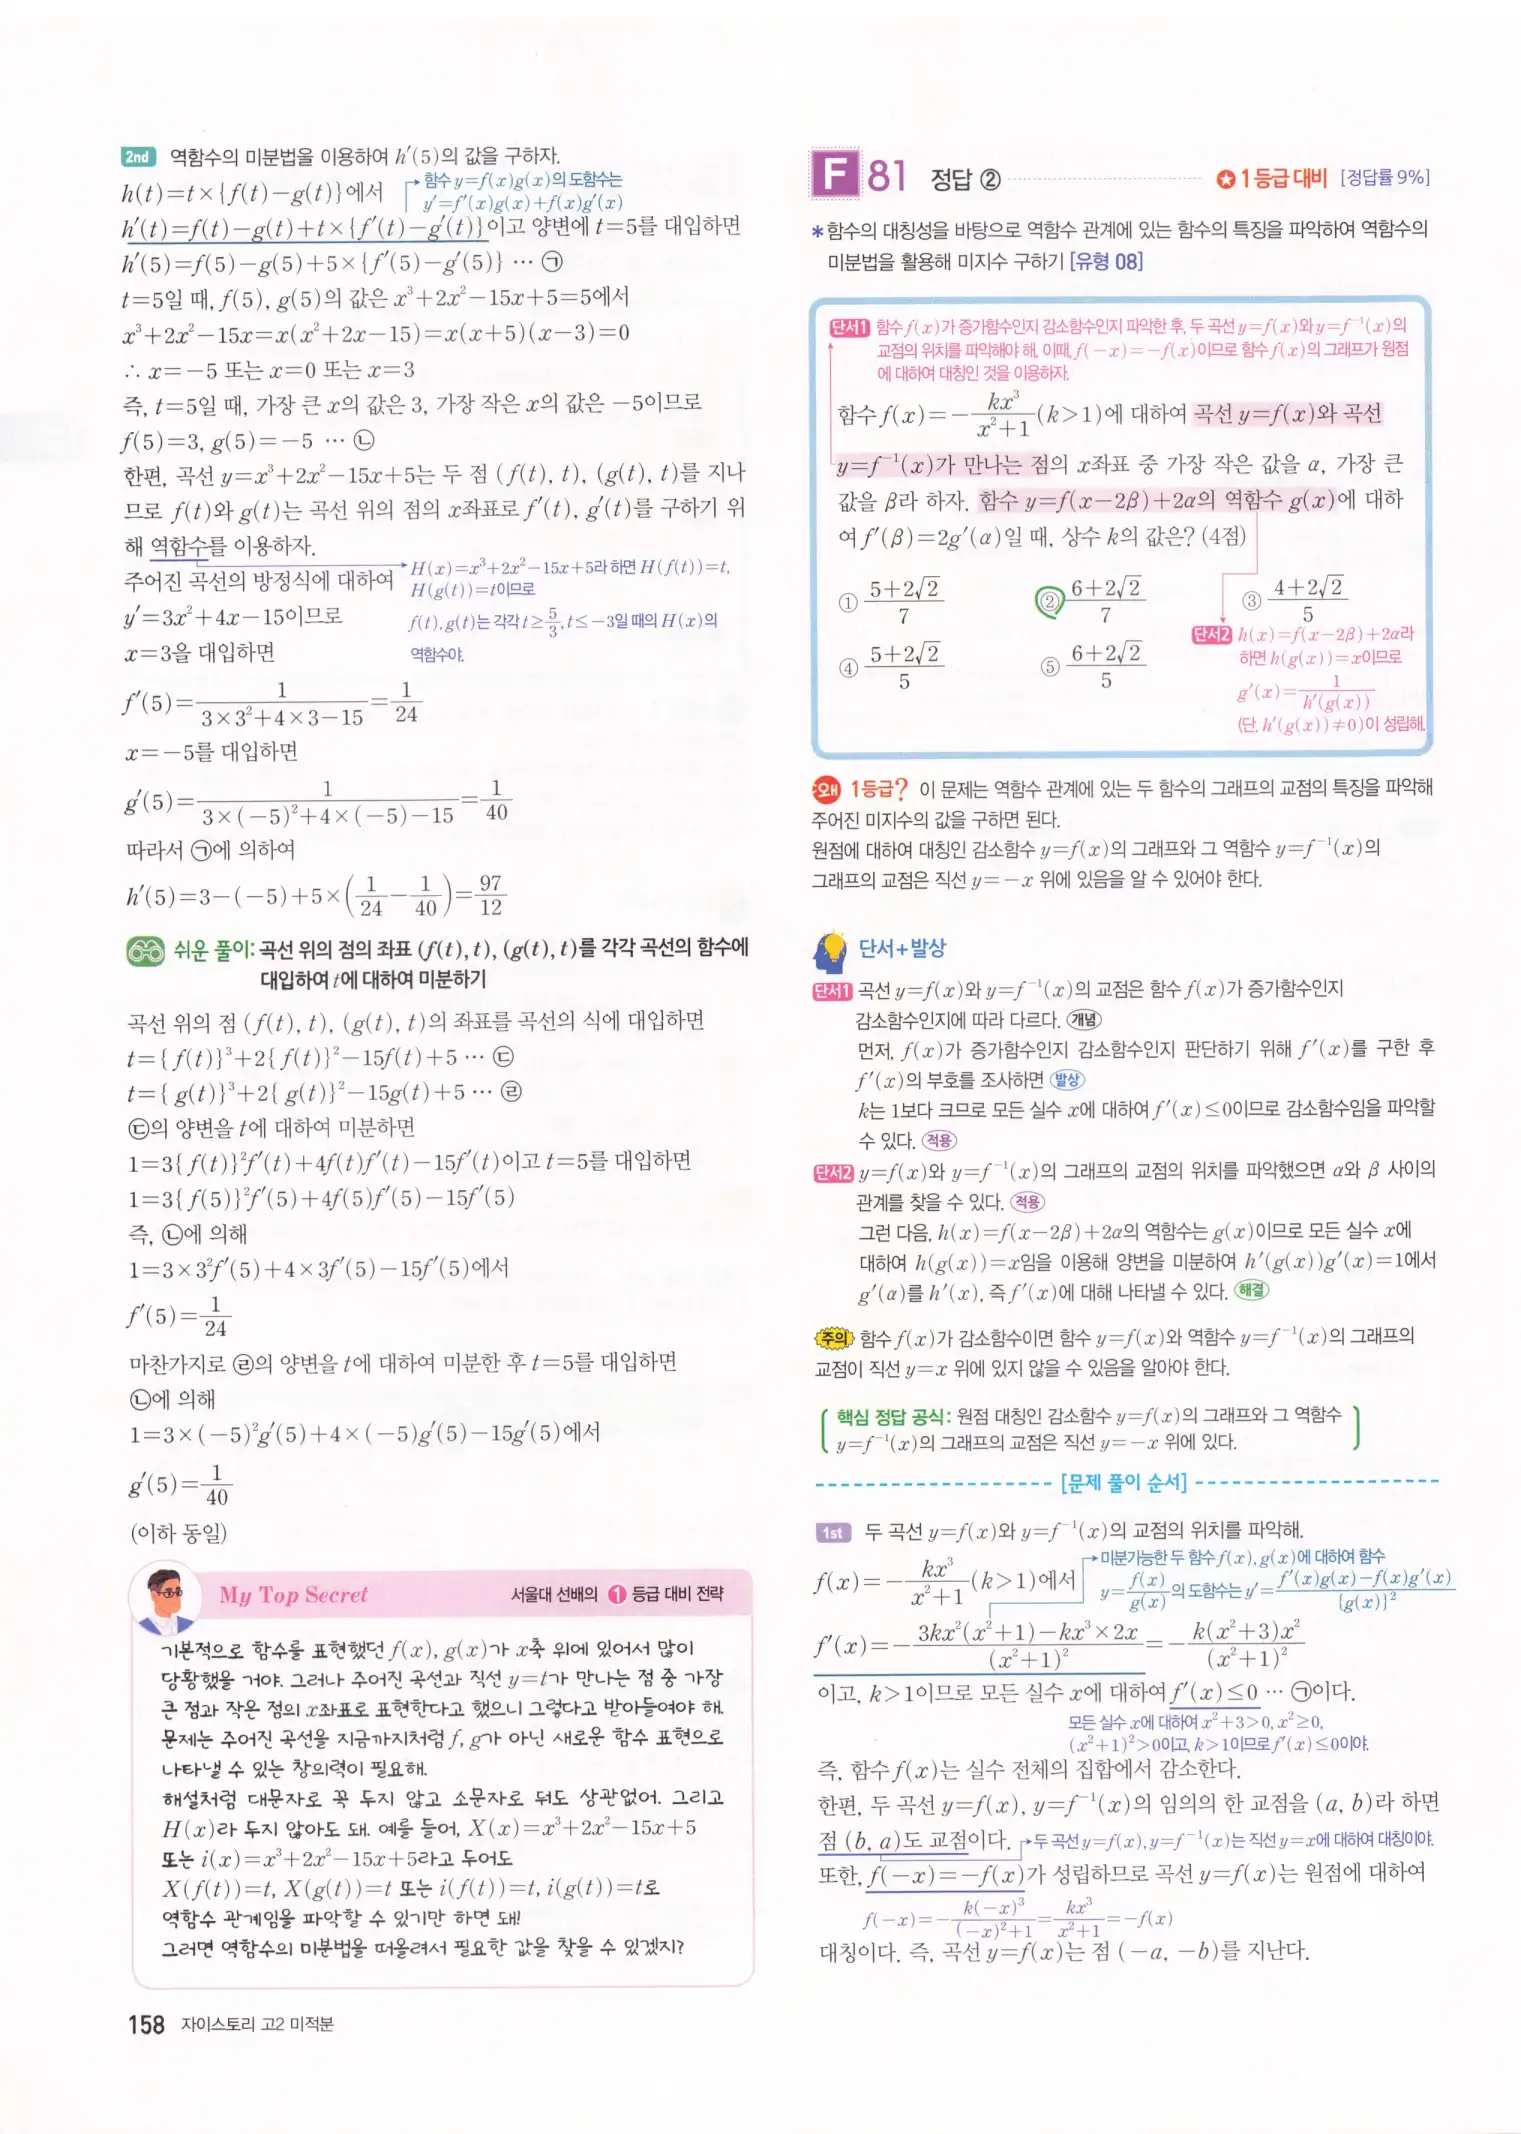 2nd 역함수의 미분법을 이용하여 h′(5)의 값을 구하자.
h(t)=t×{f(t)-g(t)}에서
함수 y=f(x)g(x)의 도함수는
y′=f′(x)g(x)+f(x)g′(x)
h′(t)=f(t)-g(t)+t×{f′(t)-g′(t)}이고 양변에 t=5를 대입하면
h′(5)=f(5)-g(5)+5×{f′(5)-g′(5)} … ㉠
t=5일 때, f(5), g(5)의 값은 x³+2x²-15x+5=5에서
x³+2x²-15x=x(x²+2x-15)=x(x+5)(x-3)=0
∴ x=-5 또는 x=0 또는 x=3
즉, t=5일 때, 가장 큰 x의 값은 3, 가장 작은 x의 값은 -5이므로
f(5)=3, g(5)=-5 … ㉡
한편, 곡선 y=x³+2x²-15x+5는 두 점 (f(t), t), (g(t), t)를 지나
므로 f(t)와 g(t)는 곡선 위의 점의 x좌표로 f′(t), g′(t)를 구하기 위
해 역함수를 이용하자.
주어진 곡선의 방정식에 대하여
H(x)=x³+2x²-15x+5라 하면 H(f(t))=t,
H(g(t))=t이므로
y′=3x²+4x-15이므로
f(t), g(t)는 각각 t≥5/3, t≤-3일 때의 H(x)의
역함수야.
x=3을 대입하면
f′(5)=1/(3×3²+4×3-15)=1/24
x=-5를 대입하면
g′(5)=1/(3×(-5)²+4×(-5)-15)=1/40
따라서 ㉠에 의하여
h′(5)=3-(-5)+5×(1/24-1/40)=97/12
쉬운 풀이: 곡선 위의 점의 좌표 (f(t), t), (g(t), t)를 각각 곡선의 함수에
대입하여 t에 대하여 미분하기
곡선 위의 점 (f(t), t), (g(t), t)의 좌표를 곡선의 식에 대입하면
t={f(t)}³+2{f(t)}²-15f(t)+5 … ㉢
t={g(t)}³+2{g(t)}²-15g(t)+5 … ㉣
㉢의 양변을 t에 대하여 미분하면
1=3{f(t)}²f′(t)+4f(t)f′(t)-15f′(t)이고 t=5를 대입하면
1=3{f(5)}²f′(5)+4f(5)f′(5)-15f′(5)
즉, ㉡에 의해
1=3×3²f′(5)+4×3f′(5)-15f′(5)에서
f′(5)=1/24
마찬가지로 ㉣의 양변을 t에 대하여 미분한 후 t=5를 대입하면
㉡에 의해
1=3×(-5)²g′(5)+4×(-5)g′(5)-15g′(5)에서
g′(5)=1/40
(이하 동일)
My Top Secret 서울대 선배의 1 등급 대비 전략
기본적으로 함수를 표현했던 f(x), g(x)가 x축 위에 있어서 많이
당황했을 거야. 그러나 주어진 곡선과 직선 y=t가 만나는 점 중 가장
큰 점과 작은 점의 x좌표로 표현한다고 했으니 그렇다고 받아들여야 해.
문제는 주어진 곡선을 지금까지처럼 f, g가 아닌 새로운 함수 표현으로
나타낼 수 있는 창의력이 필요해.
해설처럼 대문자로 꼭 두지 않고 소문자로 둬도 상관없어. 그리고
H(x)라 두지 않아도 돼. 예를 들어, X(x)=x³+2x²-15x+5
또는 i(x)=x³+2x²-15x+5라고 두어도
X(f(t))=t, X(g(t))=t 또는 i(f(t))=t, i(g(t))=t로
역함수 관계임을 파악할 수 있기만 하면 돼!
그러면 역함수의 미분법을 떠올려서 필요한 값을 찾을 수 있겠지?
158 자이스토리 고2 미적분
F 81 정답 ② ★ 1등급 대비 [정답률 9%]
* 함수의 대칭성을 바탕으로 역함수 관계에 있는 함수의 특징을 파악하여 역함수의
미분법을 활용해 미지수 구하기 [유형 08]
단서1 함수 f(x)가 증가함수인지 감소함수인지 파악한 후, 두 곡선 y=f(x)와 y=f⁻¹(x)의
교점의 위치를 파악해야 해. 이때, f(-x)=-f(x)이므로 함수 f(x)의 그래프가 원점
에 대하여 대칭인 것을 이용하자.
함수 f(x)=-kx³/(x²+1)(k>1)에 대하여 곡선 y=f(x)와 곡선
y=f⁻¹(x)가 만나는 점의 x좌표 중 가장 작은 값을 α, 가장 큰
값을 β라 하자. 함수 y=f(x-2β)+2α의 역함수 g(x)에 대하
여 f′(β)=2g′(α)일 때, 상수 k의 값은? (4점)
① (5+2√2)/7 ② (6+2√2)/7 ③ (4+2√2)/5
④ (5+2√2)/5 ⑤ (6+2√2)/5
단서2 h(x)=f(x-2β)+2α라
하면 h(g(x))=x이므로
g′(x)=1/h′(g(x))
(단, h′(g(x))≠0)이 성립해.
왜 1등급? 이 문제는 역함수 관계에 있는 두 함수의 그래프의 교점의 특징을 파악해
주어진 미지수의 값을 구하면 된다.
원점에 대하여 대칭인 감소함수 y=f(x)의 그래프와 그 역함수 y=f⁻¹(x)의
그래프의 교점은 직선 y=-x 위에 있음을 알 수 있어야 한다.
단서+발상
단서1 곡선 y=f(x)와 y=f⁻¹(x)의 교점은 함수 f(x)가 증가함수인지
감소함수인지에 따라 다르다. 개념
먼저, f(x)가 증가함수인지 감소함수인지 판단하기 위해 f′(x)를 구한 후
f′(x)의 부호를 조사하면 발상
k는 1보다 크므로 모든 실수 x에 대하여 f′(x)≤0이므로 감소함수임을 파악할
수 있다. 적용
단서2 y=f(x)와 y=f⁻¹(x)의 그래프의 교점의 위치를 파악했으면 α와 β 사이의
관계를 찾을 수 있다. 적용
그런 다음, h(x)=f(x-2β)+2α의 역함수는 g(x)이므로 모든 실수 x에
대하여 h(g(x))=x임을 이용해 양변을 미분하여 h′(g(x))g′(x)=1에서
g′(α)를 h′(x), 즉 f′(x)에 대해 나타낼 수 있다. 해결
주의 함수 f(x)가 감소함수이면 함수 y=f(x)와 역함수 y=f⁻¹(x)의 그래프의
교점이 직선 y=x 위에 있지 않을 수 있음을 알아야 한다.
핵심 정답 공식: 원점 대칭인 감소함수 y=f(x)의 그래프와 그 역함수
y=f⁻¹(x)의 그래프의 교점은 직선 y=-x 위에 있다.
[문제 풀이 순서]
1st 두 곡선 y=f(x)와 y=f⁻¹(x)의 교점의 위치를 파악해.
f(x)=-kx³/(x²+1)(k>1)에서
미분가능한 두 함수 f(x), g(x)에 대하여 함수
y=f(x)/g(x)의 도함수는 y′={f′(x)g(x)-f(x)g′(x)}/{g(x)}²
f′(x)=-{3kx²(x²+1)-kx³×2x}/(x²+1)²=-k(x²+3)x²/(x²+1)²
이고, k>1이므로 모든 실수 x에 대하여 f′(x)≤0 … ㉠이다.
모든 실수 x에 대하여 x²+3>0, x²≥0,
(x²+1)²>0이고, k>1이므로 f′(x)≤0이야.
즉, 함수 f(x)는 실수 전체의 집합에서 감소한다.
한편, 두 곡선 y=f(x), y=f⁻¹(x)의 임의의 한 교점을 (a, b)라 하면
점 (b, a)도 교점이다.
두 곡선 y=f(x), y=f⁻¹(x)는 직선 y=x에 대하여 대칭이야.
또한, f(-x)=-f(x)가 성립하므로 곡선 y=f(x)는 원점에 대하여
f(-x)=-k(-x)³/((-x)²+1)=kx³/(x²+1)=-f(x)
대칭이다. 즉, 곡선 y=f(x)는 점 (-a, -b)를 지난다.